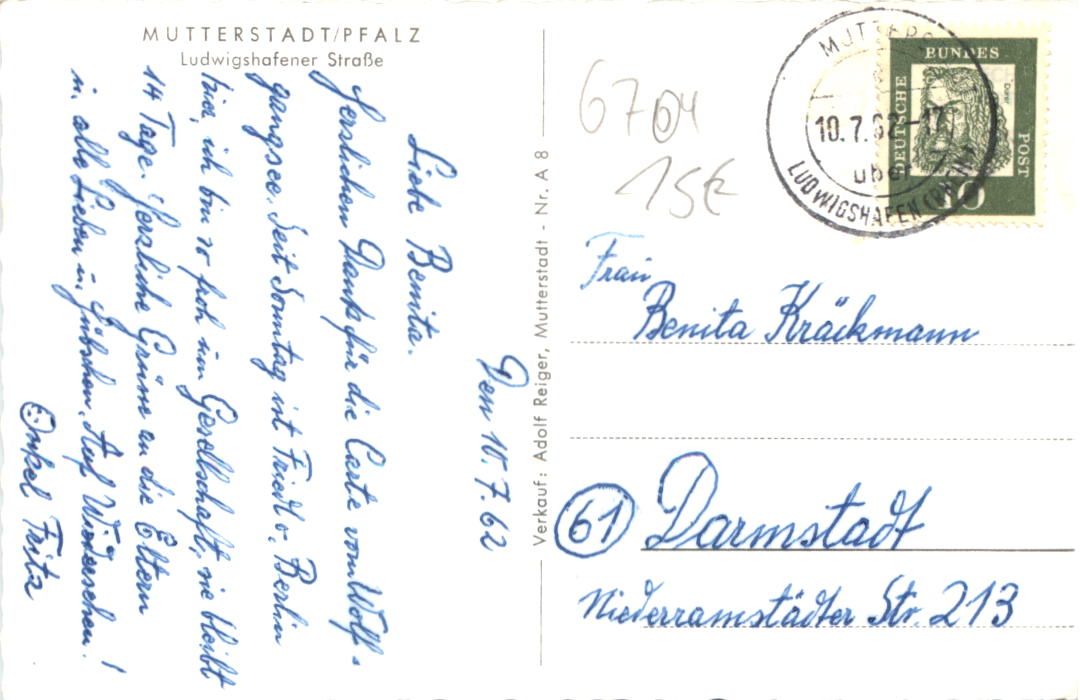 MUTTERSTADT/PFALZ
Ludwigshafener Straße
Den 10.7.62
Liebe Benita.
Herzlichen Dank für die Carte vom Wolf-
gangsee. Seit Sonntag ist Friedl v. Berlin
hier, ich bin so froh um Gesellschaft, sie bleibt
14 Tage. Herzliche Grüsse an die Eltern
u. alle Lieben in Auf Wiedersehen!
Onkel Fritz
Verkauf: Adolf Reiger, Mutterstadt - Nr. A 8
6704
15€
10.7.62-17
über
LUDWIGSHAFEN (RHEIN)
DEUTSCHE
BUNDES
POST
10
Frau
Benita Kräckmann
61 Darmstadt
Niederramstädter Str. 213